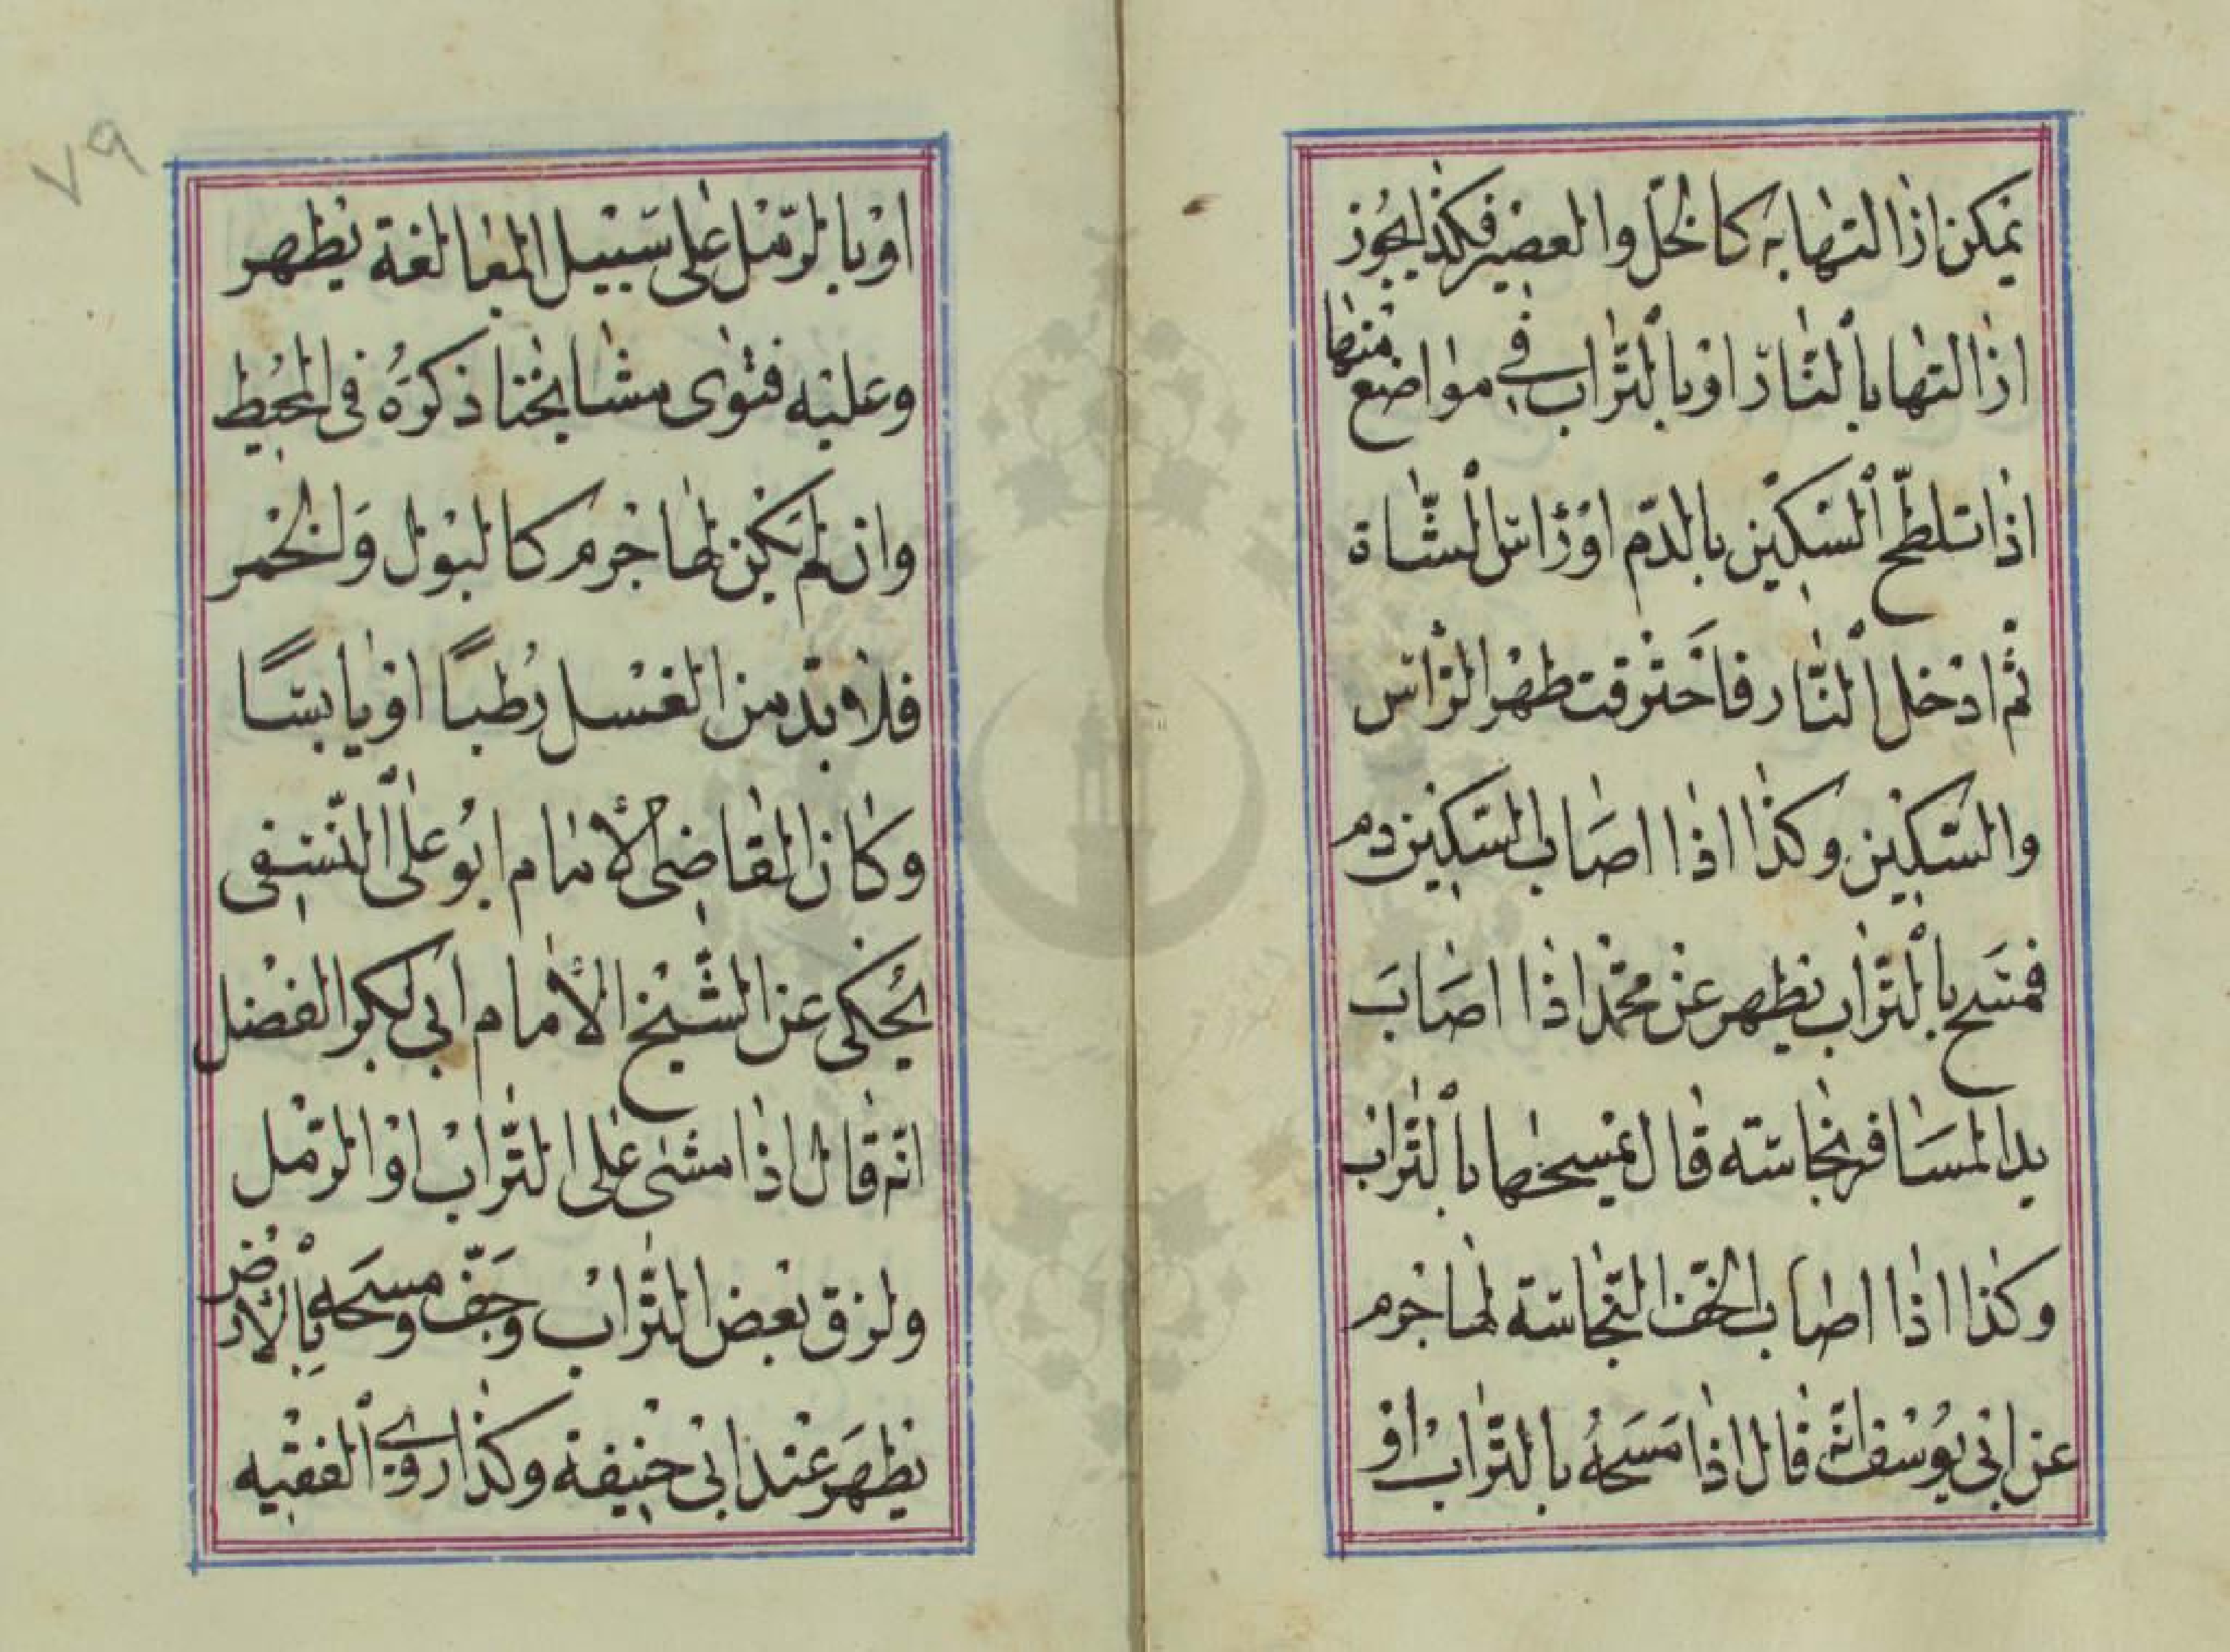 يمكن ازالتها به كالخلّ والعصير فكذا يجوز
ازالتها بالنّار او بالتّراب في مواضع منها
اذا تلطّخ السّكين بالدّم او رأس الشّاة
ثم ادخل النّار فاحترقت طهر الرّأس
والسّكين وكذا اذا اصاب السّكين دم
فمسح بالتّراب يطهر عن محمّد اذا اصابَ
يد المسَافر نجاسته قال يمسحها بالتّراب
وكذا اذا اصاب الخفّ النّجاسة لها جرم
عن ابي يُوسف انّه قال اذا مَسَحهُ بالتّراب او
او بالرّمل على سَبيل المبالغة يطهر
وعليه فتوى مشايخنا ذكرهُ في المحيط
وان لم يَكن لها جرم كالبول وَالخمر
فلا بدّ من الغسل رُطبًا او يابسًا
وكان القاضي الأمام ابُو على النّسفى
يُحكى عن الشّيخ الأمام ابي بكر الفضل
انّه قال اذا مشى على التّراب او الرّمل
ولزق بعض التّراب وَجَفّ ومسَحه بالأرض
يطهَر عند ابى حنيفة وكذا روى الفقيه
٧٩